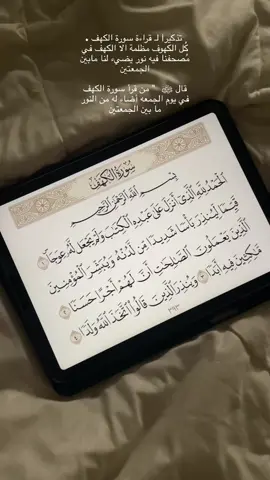 تذكيراً لـ قراءة سورة الكهف •
كُل الكهوف مظلمة الا الكهف في
مُصحفنا فيه نور يضيء لنا مابين
الجمعتين
قال ﷺ " من قرأ سورة الكهف
في يوم الجمعه أضاء له من النور
ما بين الجمعتين
سورة الكهف
بسم الله الرحمن الرحيم
الحمد لله الذي أنزل على عبده الكتب ولم يجعل له عوجا ١
قيما لينذر بأسا شديدا من لدنه ويبشر المؤمنين
الذين يعملون الصلحت أن لهم أجرا حسنا ٢
مكثين فيه أبدا ٣ وينذر الذين قالوا اتخذ الله ولدا ٤
٢٩٣